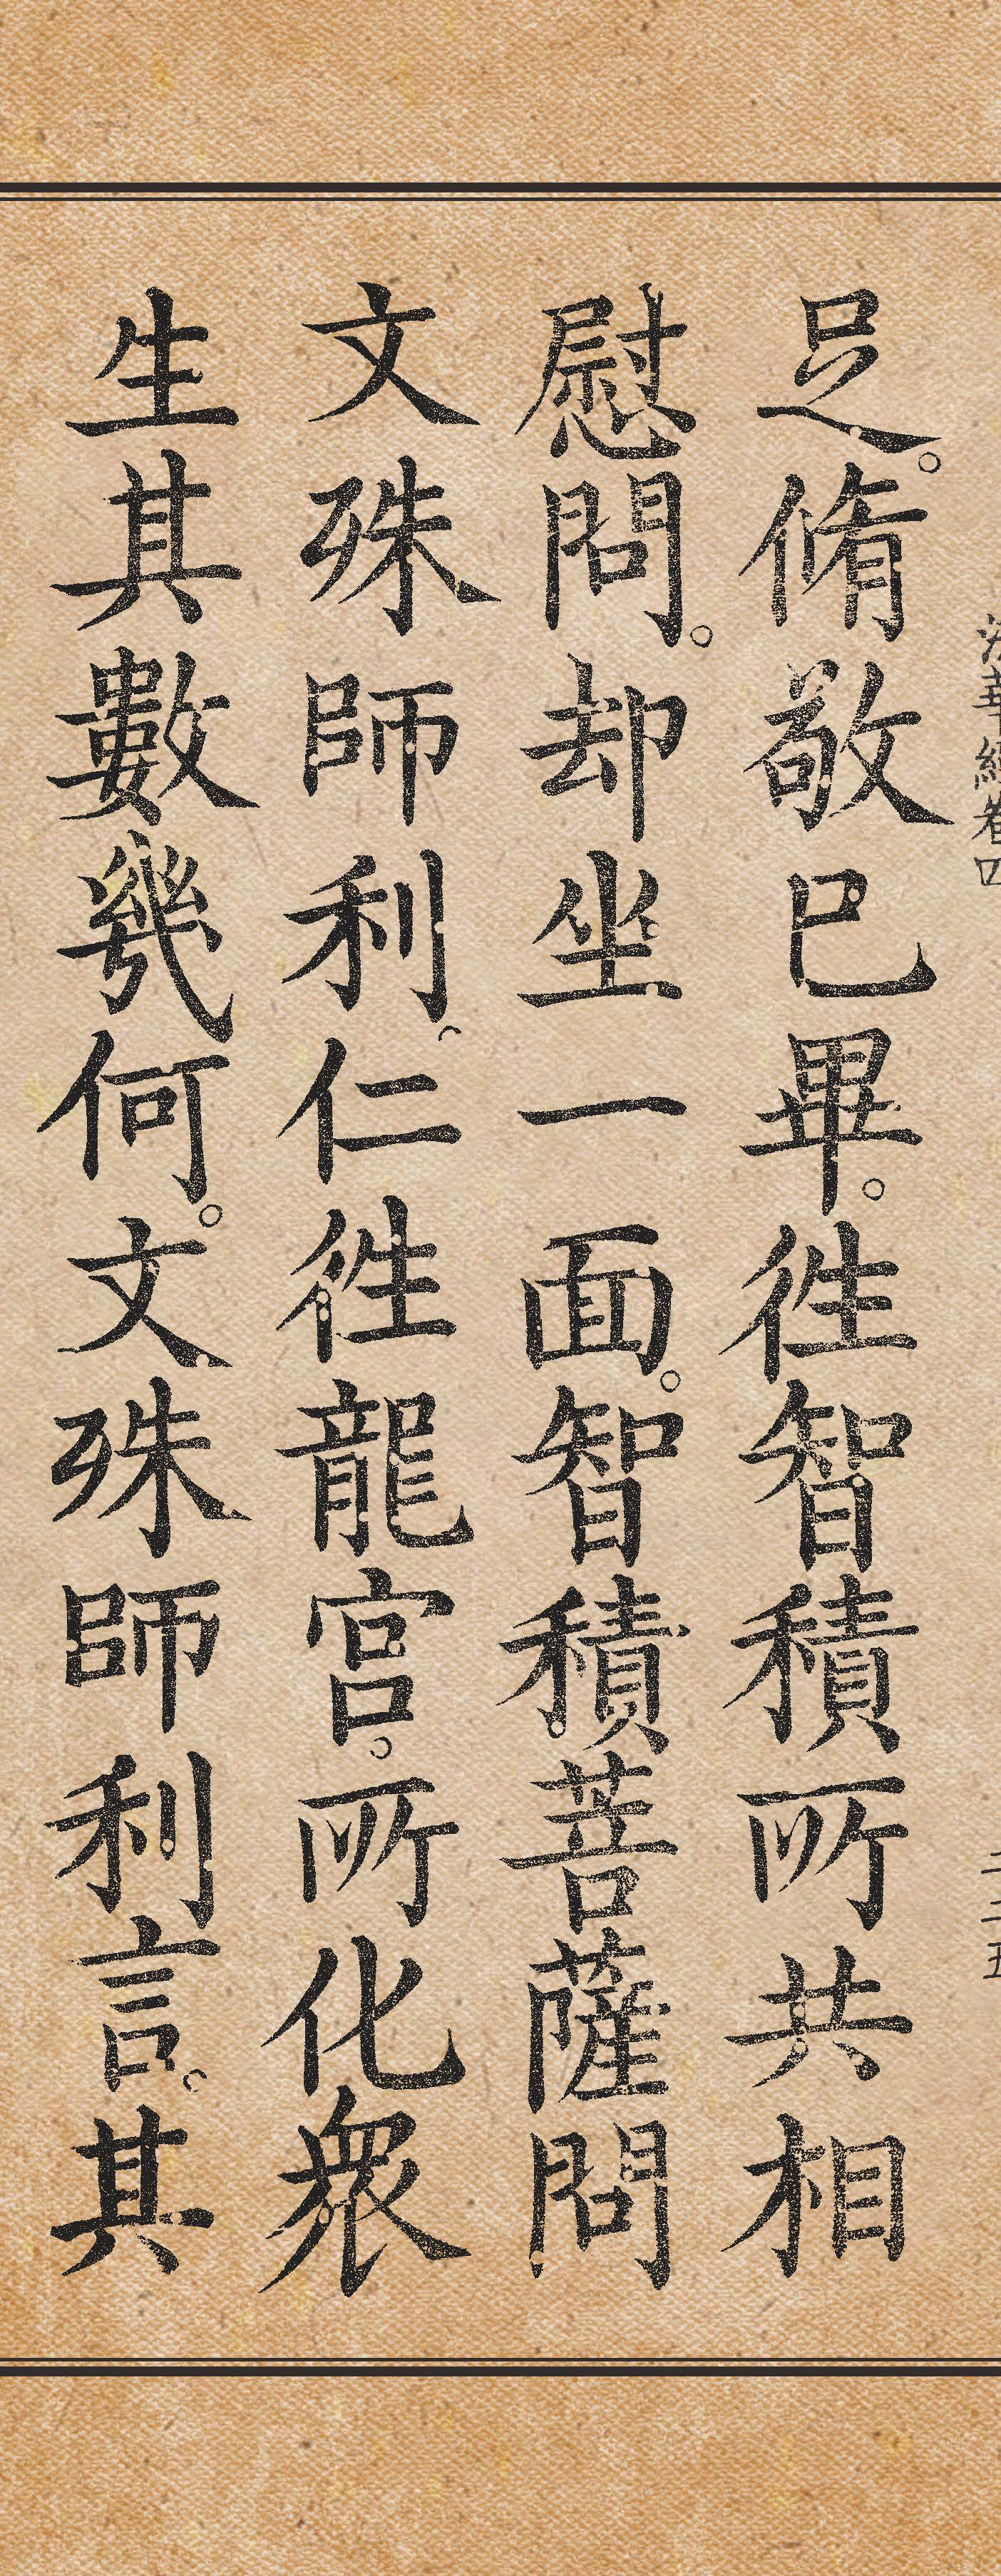 法華經卷四
二二五
足。脩敬已畢。徃智積所共相
慰問。却坐一面。智積菩薩問
文殊師利。仁徃龍宮。所化衆
生其數幾何。文殊師利言。其